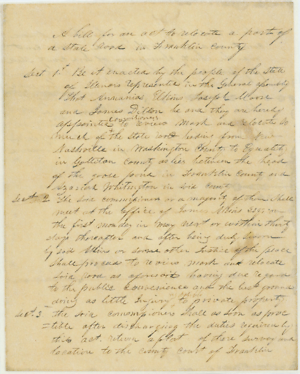 A bill for an act to relocate a part of
a state road in Franklin County
Sect 1st Be it enacted by the people of the State
of Illinois represented in the General Assembly
that Joseph
and James be and they are hereby
appointed Commissioners to review mark and relocate so
much of the state road leading from
Nashville in Washington County to Equality
in Gallatin County as lies between the head
of the prairie in Franklin County and
Whitington in said County
Sect 2 The said commissioners or a majority of them shall
meet at the office of Esq on
the first monday in May next or within thirty
days thereafter and after being duly sworn
by said or some other Justice of the peace
shall proceed to review mark and relocate
said road as aforesaid having due regard
to the public convenience and the best ground
doing as little Injury to private property
Sect 3 the said commissioners shall as soon as prac-
ticable after discharging the duties required by
this act return a plat of there survey and
location to the county court of Franklin